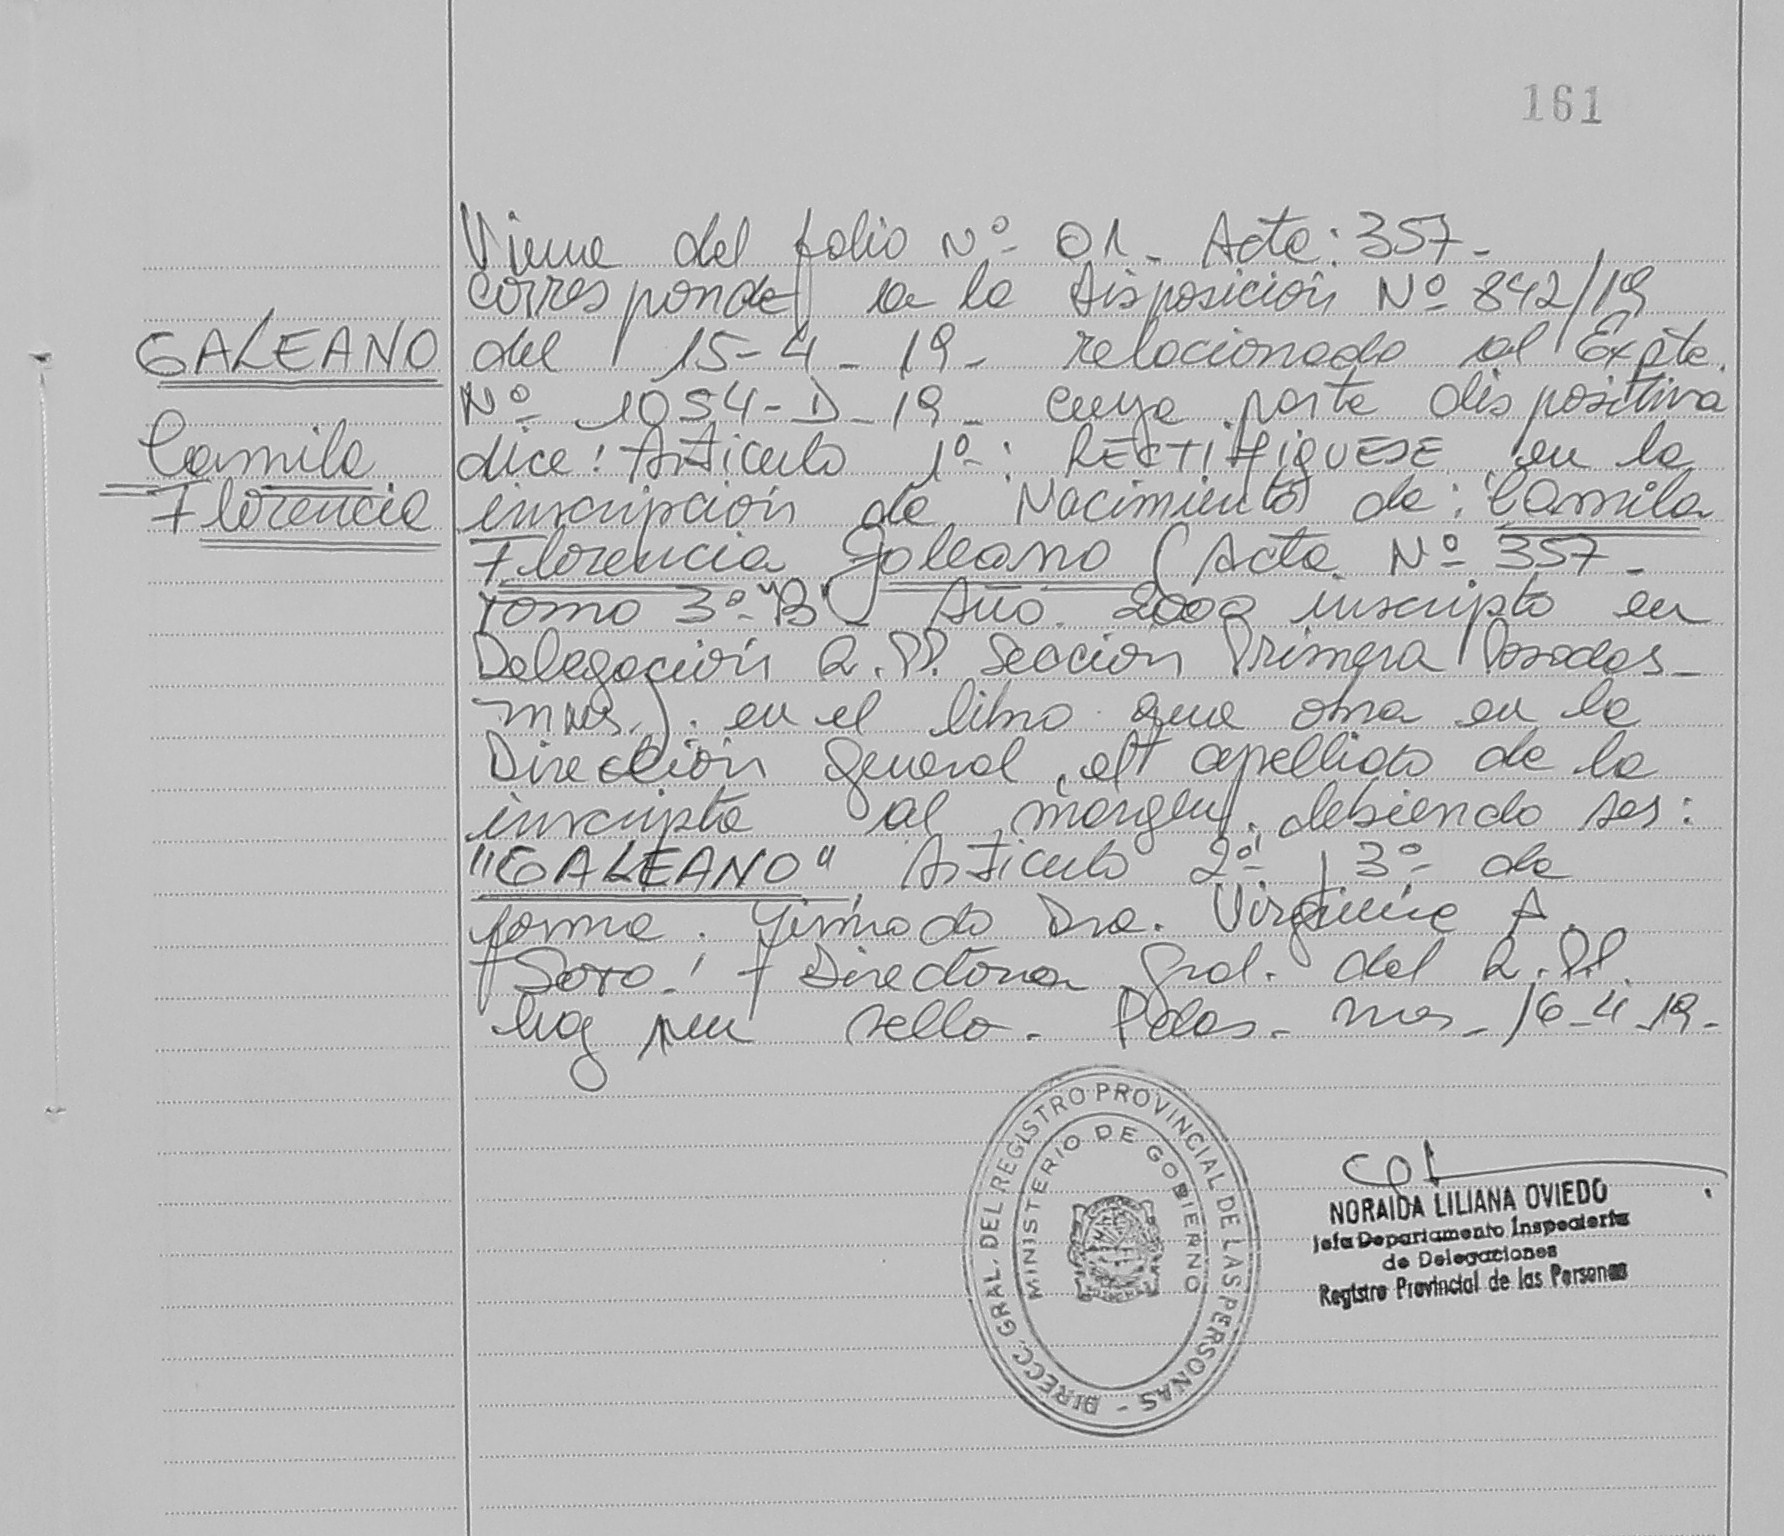 161
Viene del folio Nº 01- Acta: 357-
corresponde a la Disposición Nº 842/19
GALEANO
del 15-4-19- relacionado al Expte.
Nº 1054-D-19- cuya parte dispositiva
Camila
dice: Artículo 1º: RECTIFIQUESE en la
Florencia
inscripción de Nacimiento de: Camila
Florencia Galeano (Acta Nº 357-
Tomo 3º "B" Año 2000 inscripto en
Delegación R.PP. Sección Primera Posadas-
mnes.). en el libro que obra en la
Dirección General, el apellido de la
inscripta al margen, debiendo ser:
"GALEANO" Artículo 2º, 3º de
forma. Firmado Dra. Virginia A.
Directora Gral. del R.PP.
hay un sello. Pdas. mes. 16-4-19-
DIRECC. GRAL. DEL REGISTRO PROVINCIAL DE LAS PERSONAS -
MINISTERIO DE GOBIERNO
NORAIDA LILIANA OVIEDO
Jefa Departamento Inspectoría
de Delegaciones
Registro Provincial de las Personas